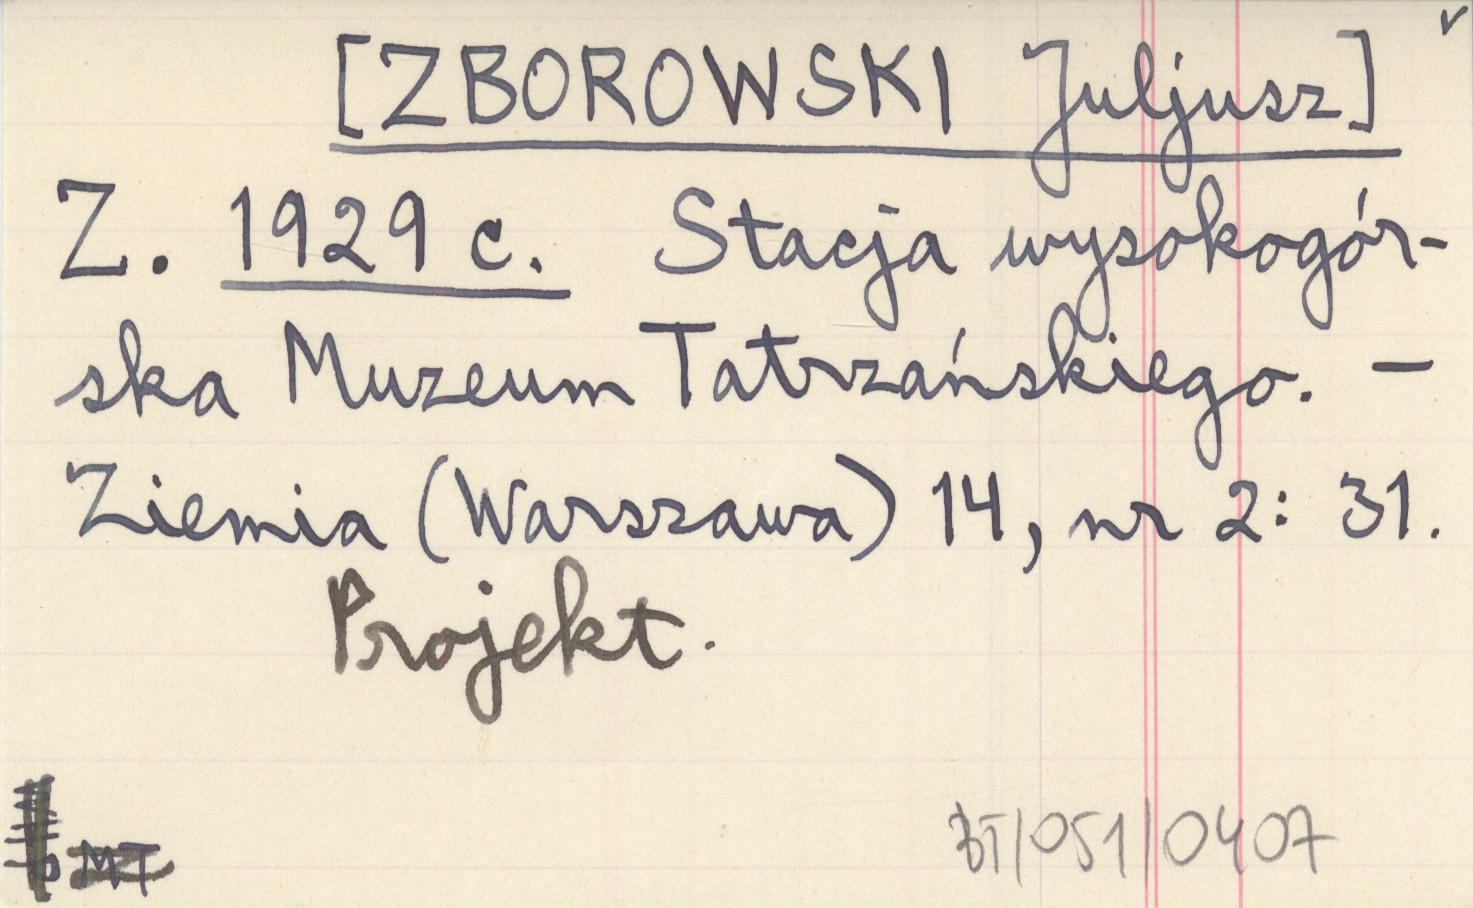 [ZBOROWSKI Juljusz]
Z. 1929 c. Stacja wysokogór-
ska Muzeum Tatrzańskiego. –
Ziemia (Warszawa) 14, nr 2: 31.
Projekt.
MT
BT/051/0407